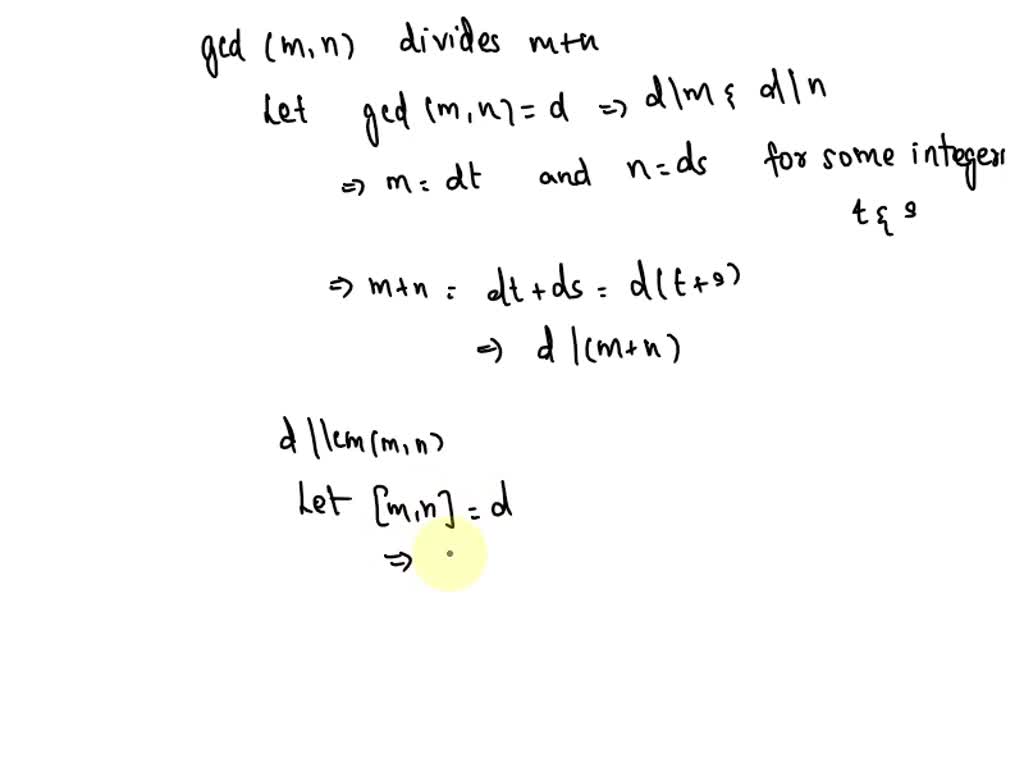 gcd (m,n) divides m+n
Let gcd (m,n) = d ⇒ d|m & d|n
⇒ m = dt and n = ds for some integers
t & s
⇒ m+n = dt + ds = d(t+s)
⇒ d |(m+n)
d | lcm(m,n)
Let [m,n] = d
⇒